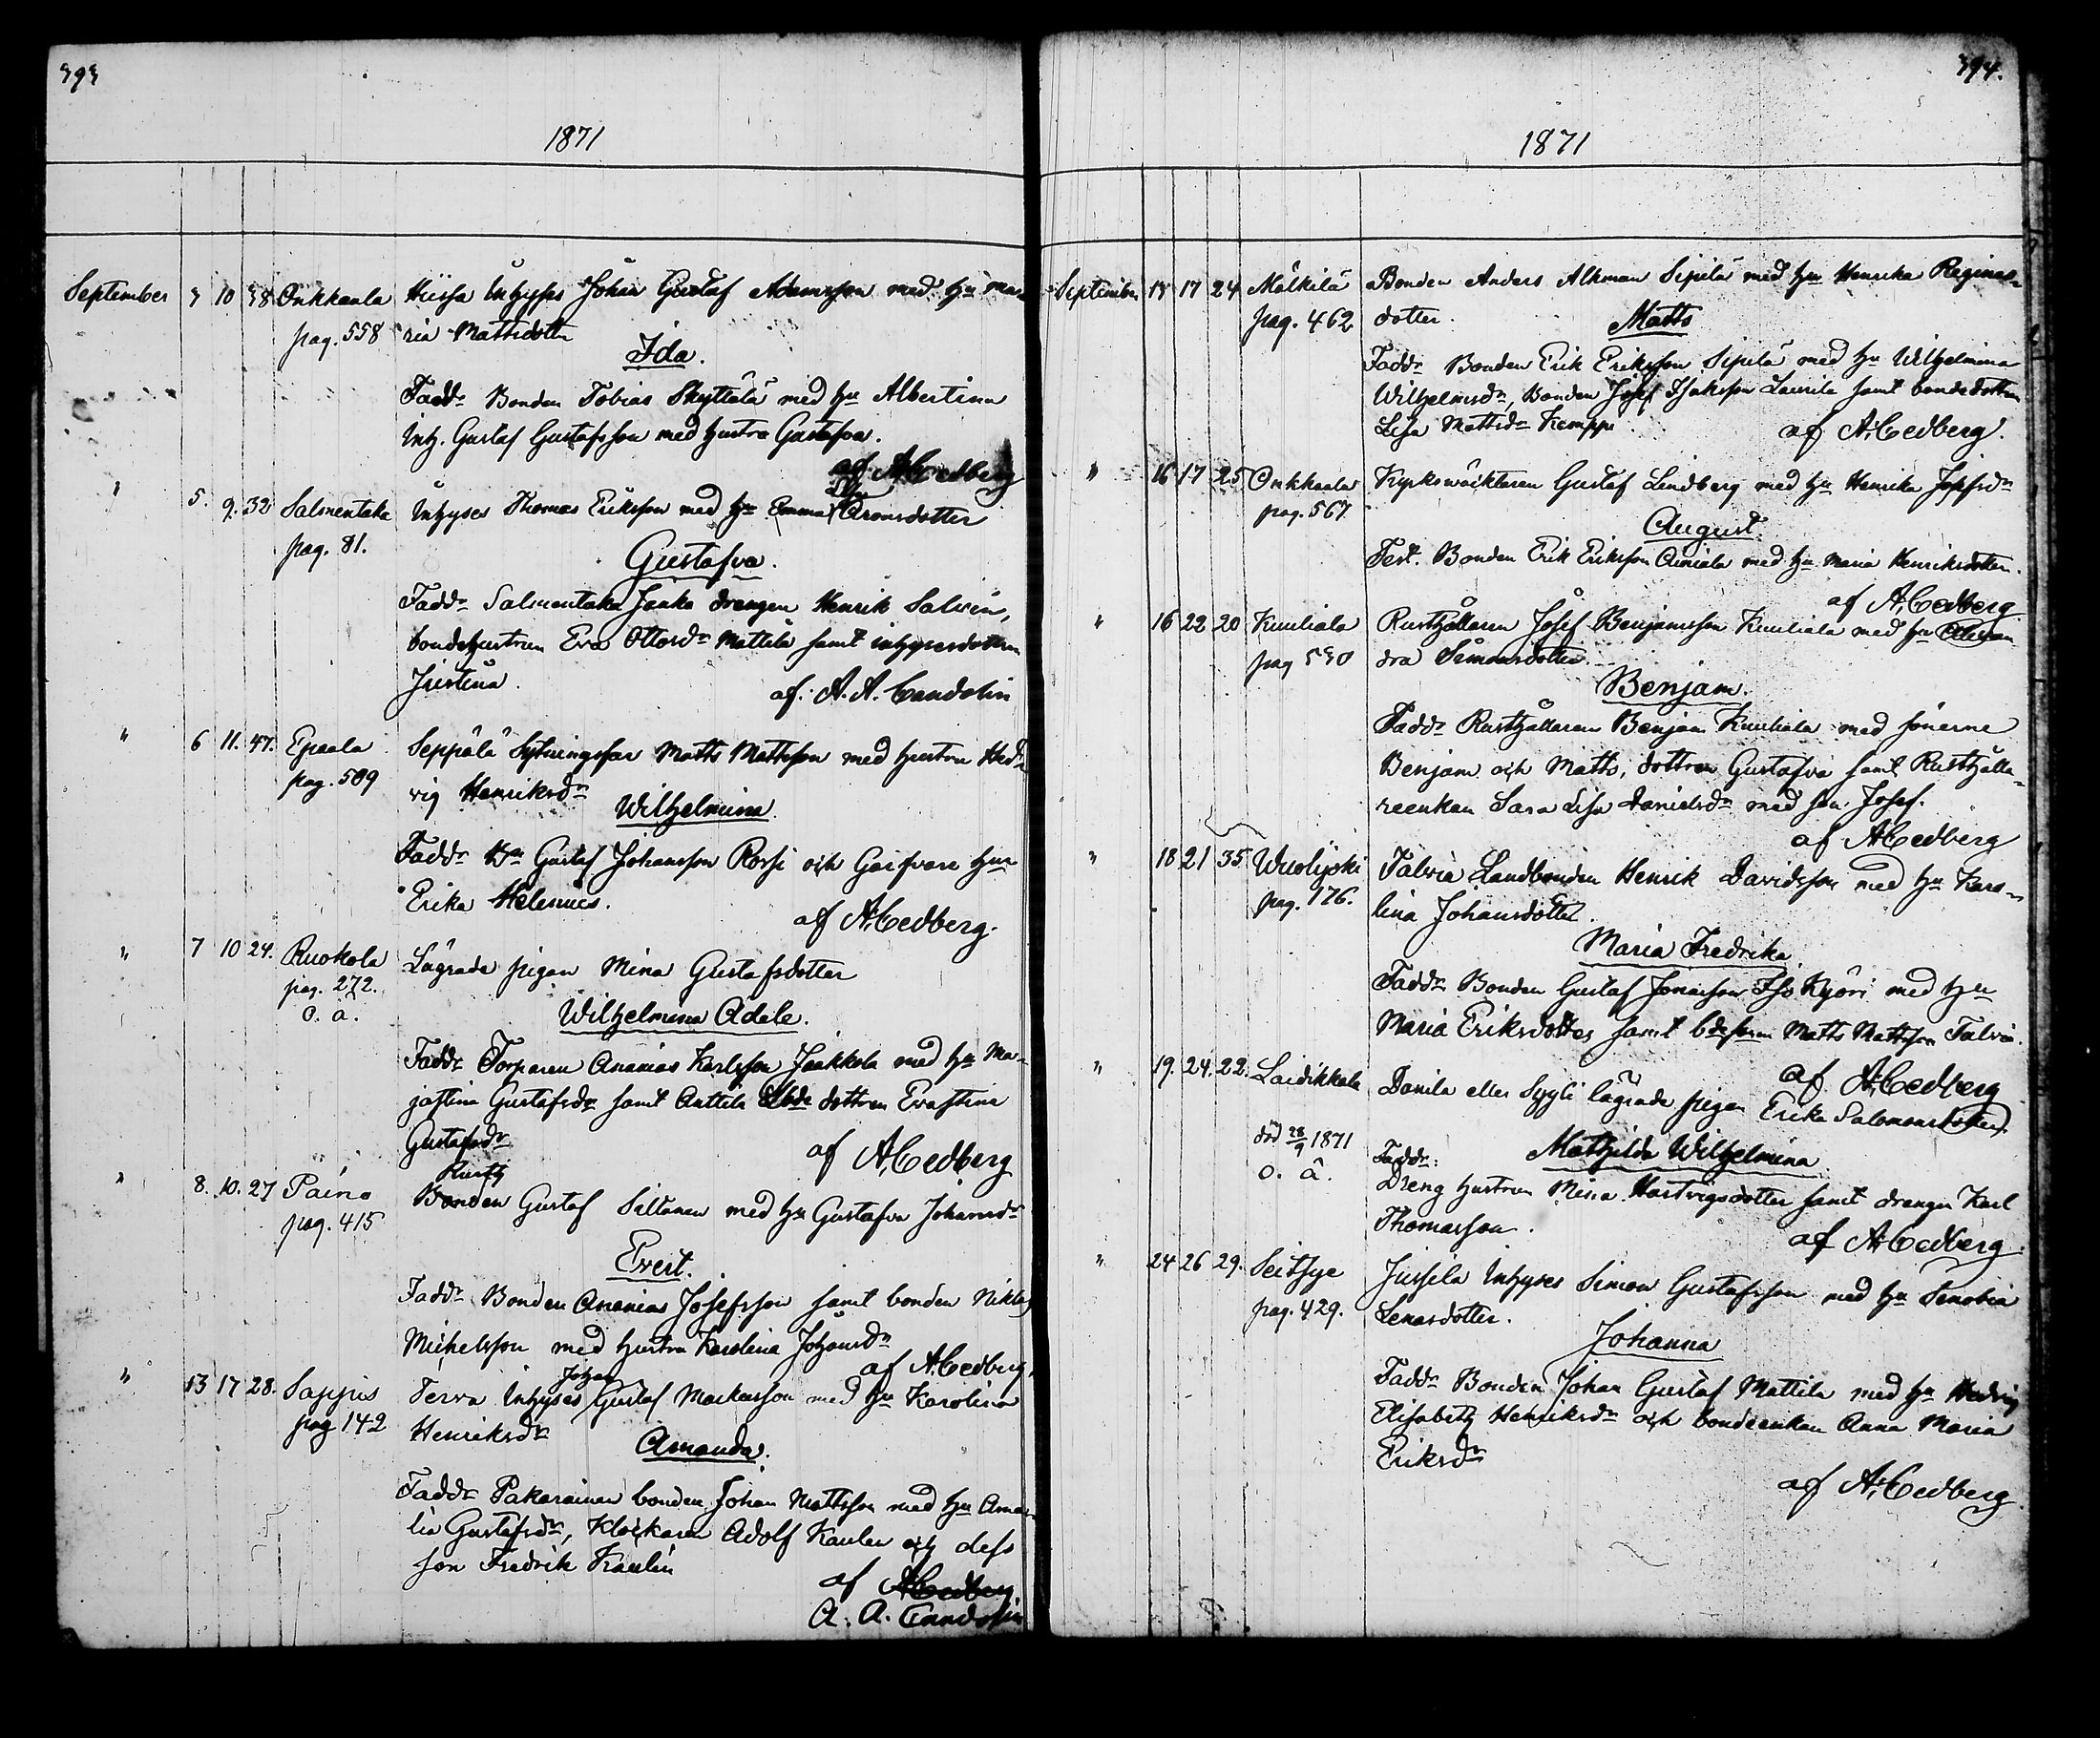 393
1871
September 3 10 38 Onkkaala Hiissa Inhyses Johan Gustaf Adamsson med hu Ma-
pag. 558 ria Mattsdotter
Ida.
Fadd. Bonden Tobias Skyttälä med hu Albertina
Inh. Gustaf Gustafsson med hustru Gustafva.
af A. Cedberg
" 5. 9. 32 Salmentaka Inhyses Thomas Eriksson med hu Emma Aronsdotter
pag. 81.
Gustafva.
Fadd. Salmentaka Janka drängen Henrik Salvén,
bondehustrun Eva Ottosdr Mattila samt inhysesdottern
Justina.
af. A. A. Candolin
" 6 11. 47. Epaala Seppälä Sytningsfar Matts Mattsson med hustru Hed-
pag. 589 vig Henriksdr
Wilhelmina.
Fadd. Gustaf Johansson Rossi och Garfvare hu
Erika Helenius.
af A. Cedberg.
" 7 10 24. Ruokola Lägrade pigan Mina Gustafsdotter
pag. 272.
o. ä.
Wilhelmina Adele.
Fadd. Torparen Ananias Karlsson Jaakkola med hu Ma-
jastina Gustafsdr samt Anttila dottren Evastina
Gustafsdr
af A. Cedberg
Rusth
" 8. 10. 27 Paino Bonden Gustaf Siltanen med hu Gustafva Johansdr
pag. 415
Evert.
Fadd. Bonden Ananias Josefsson samt bonden Niklas
Michelsson med hustru Karolina Johansdr
af A. Cedberg.
Johan
" 13 17 28. Sappis Terva Inhyses Gustaf Markusson med hu Karolina
pag 142 Henriksdr
Amanda.
Fadd. Pakarainen bonden Johan Mattsson med hu Ama-
lia Gustafsdr, Klockaren Adolf Kaulen och dess
son Fredrik Kaulin
af A. Cedberg
A. A. Candolin
394.
1871
September 15 17 24 Mälkilä Bonden Anders Alkman Sipilä med hu Henrika Reginas-
pag. 462 dotter.
Matts
Fadd. Bonden Erik Eriksson Sipilä med hu Wilhelmina
Wilhelmsdr, Bonden Josef Isaksson Laurila samt bondedottren
Lisa Mattsdr Kemppi.
af A. Cedberg.
" 16 17 25 Onkkaala Kyrkowäktaren Gustaf Lindberg med hu Henrika Josefsdr
pag. 567
August.
Test. Bonden Erik Eriksson Äiniälä med hu Maria Henriksdotter.
af A. Cedberg
" 16 22 20 Kuuliala Rusthållaren Josef Benjamsson Kuuliala med hu Alexan-
pag 530 dra Simonsdotter.
Benjam.
Fadd. Rusthållaren Benjam Kuuliala med sönerne
Benjam och Matts, dottren Gustafva samt Rusthålla-
reenkan Sara Lisa Danielsdr med son Josef.
af A. Cedberg
" 18 21 35 Wuolijoki Talvia Landbonden Henrik Davidsson med hu Karo-
pag. 176. lina Johansdotter.
Maria Fredrika
Fadd. Bonden Gustaf Jonasson Iso Kyöri med hu
Maria Eriksdotter samt bdesonen Matts Mattsson Talvia.
af A. Cedberg
" 19. 24. 22. Laidikkala Danila eller Syyli lägrade pigan Erika Salomonsdotter.
död 28/9 1871
o. ä.
Mathilda Wilhelmina
Fadd.:
Dreng hustrun Mina Hartvigsdotter samt drengen Karl
Thomasson.
af A. Cedberg.
" 24 26 29. Seitsye Jussila Inhyses Simon Gustafsson med hu Senobia
pag. 429. Lenasdotter.
Johanna
Fadd. Bonden Johan Gustaf Mattila med hu Hedvig
Elisabeth Henriksdr och bondeenkan Anna Maria
Eriksdr
af A. Cedberg